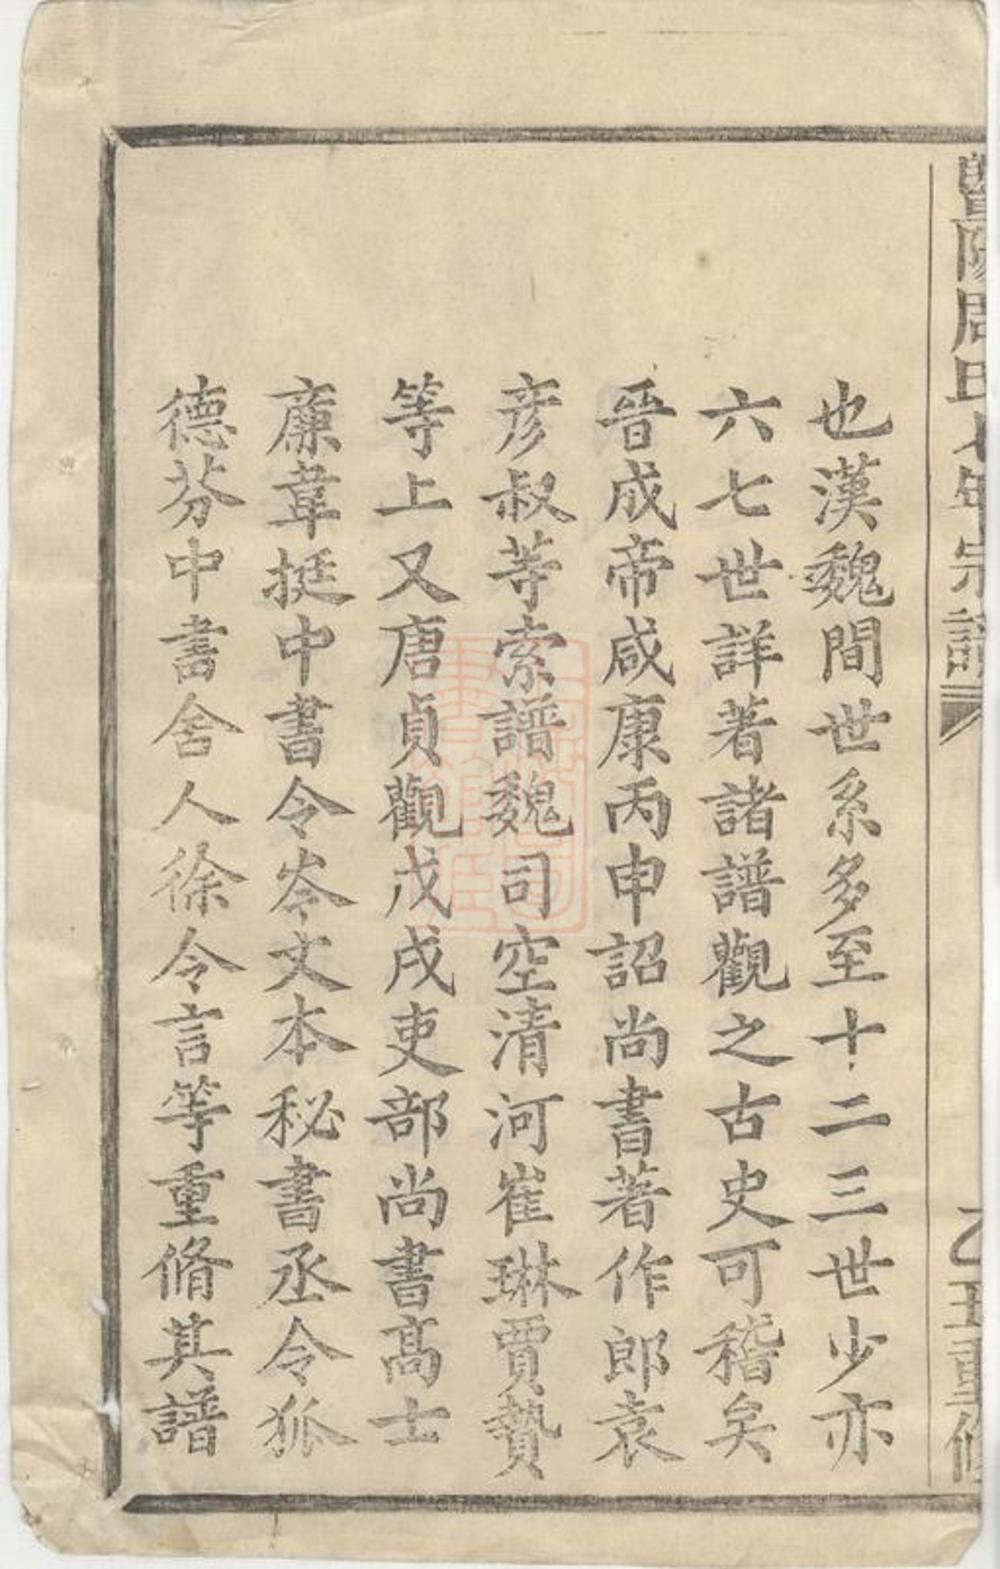 暨陽周氏七年宗譜
乙丑重修
也漢魏間世系多至十二三世少亦
六七世詳著諸譜觀之古史可稽矣
晉成帝咸康丙申詔尚書著作郎袁
彥叔等索譜魏司空清河崔琳賈贄
等上又唐貞觀戊戌吏部尚書高士
廉韋挺中書令岑文本秘書丞令狐
德芬中書舍人徐令言等重脩其譜